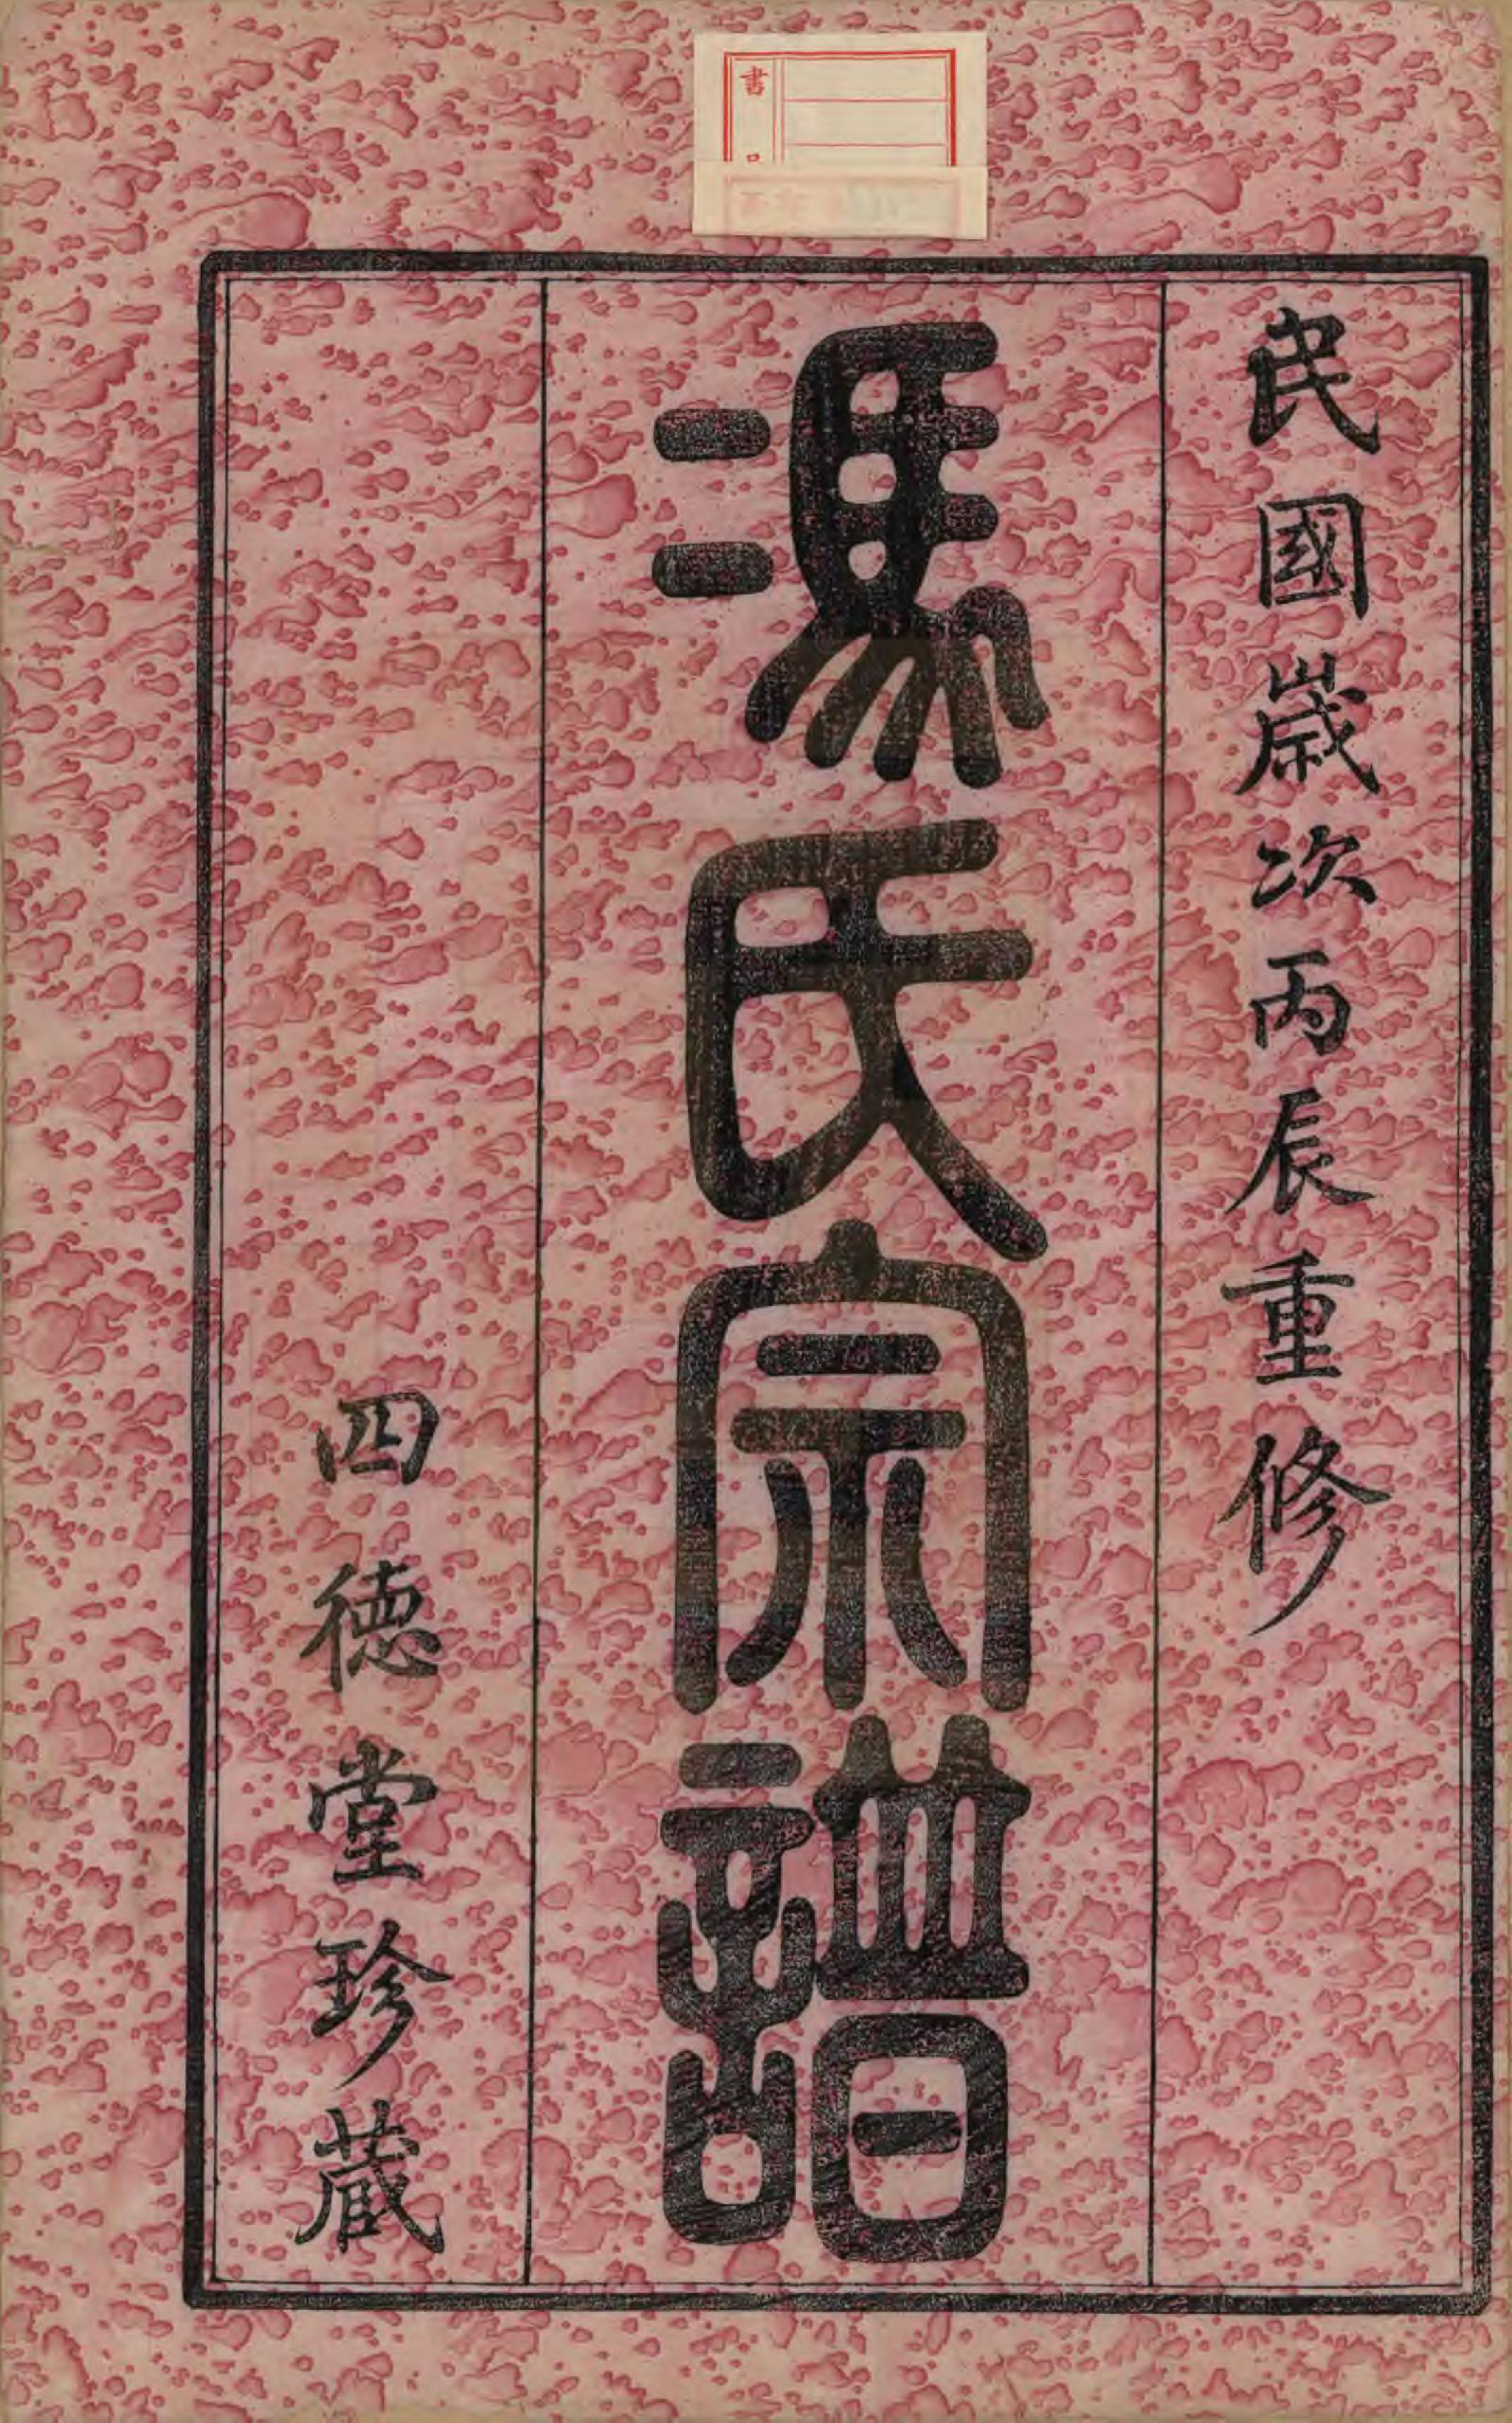 民國歲次丙辰重修
馮氏宗譜
四德堂珍藏
書